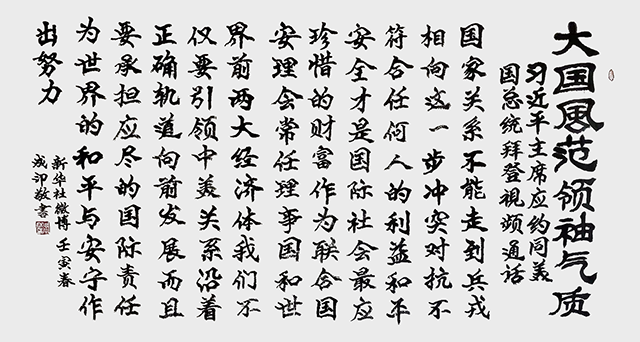 大国風范领袖气质
习近平主席应约同美
国总统拜登視频通话
国家关系不能走到兵戎
相向这一步冲突对抗不
符合任何人的利益和平
安全才是国际社会最应
珍惜的财富作为联合国
安理会常任理事国和世
界前两大经济体我们不
仅要引领中美关系沿着
正确轨道向前发展而且
要承担应尽的国际责任
为世界的和平与安宁作
出努力
新华社微博 壬寅春
成印敬書